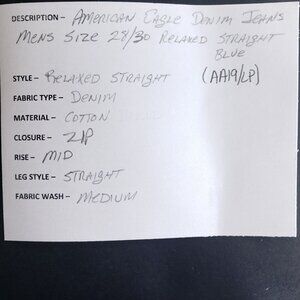 DESCRIPTION – AMERICAN EAGLE DENIM JEANS
MENS SIZE 28/30 RELAXED STRAIGHT
BLUE
STYLE – RELAXED STRAIGHT (AA19/LP)
FABRIC TYPE – DENIM
MATERIAL – COTTON
CLOSURE – ZIP
RISE – MID
LEG STYLE – STRAIGHT
FABRIC WASH – MEDIUM